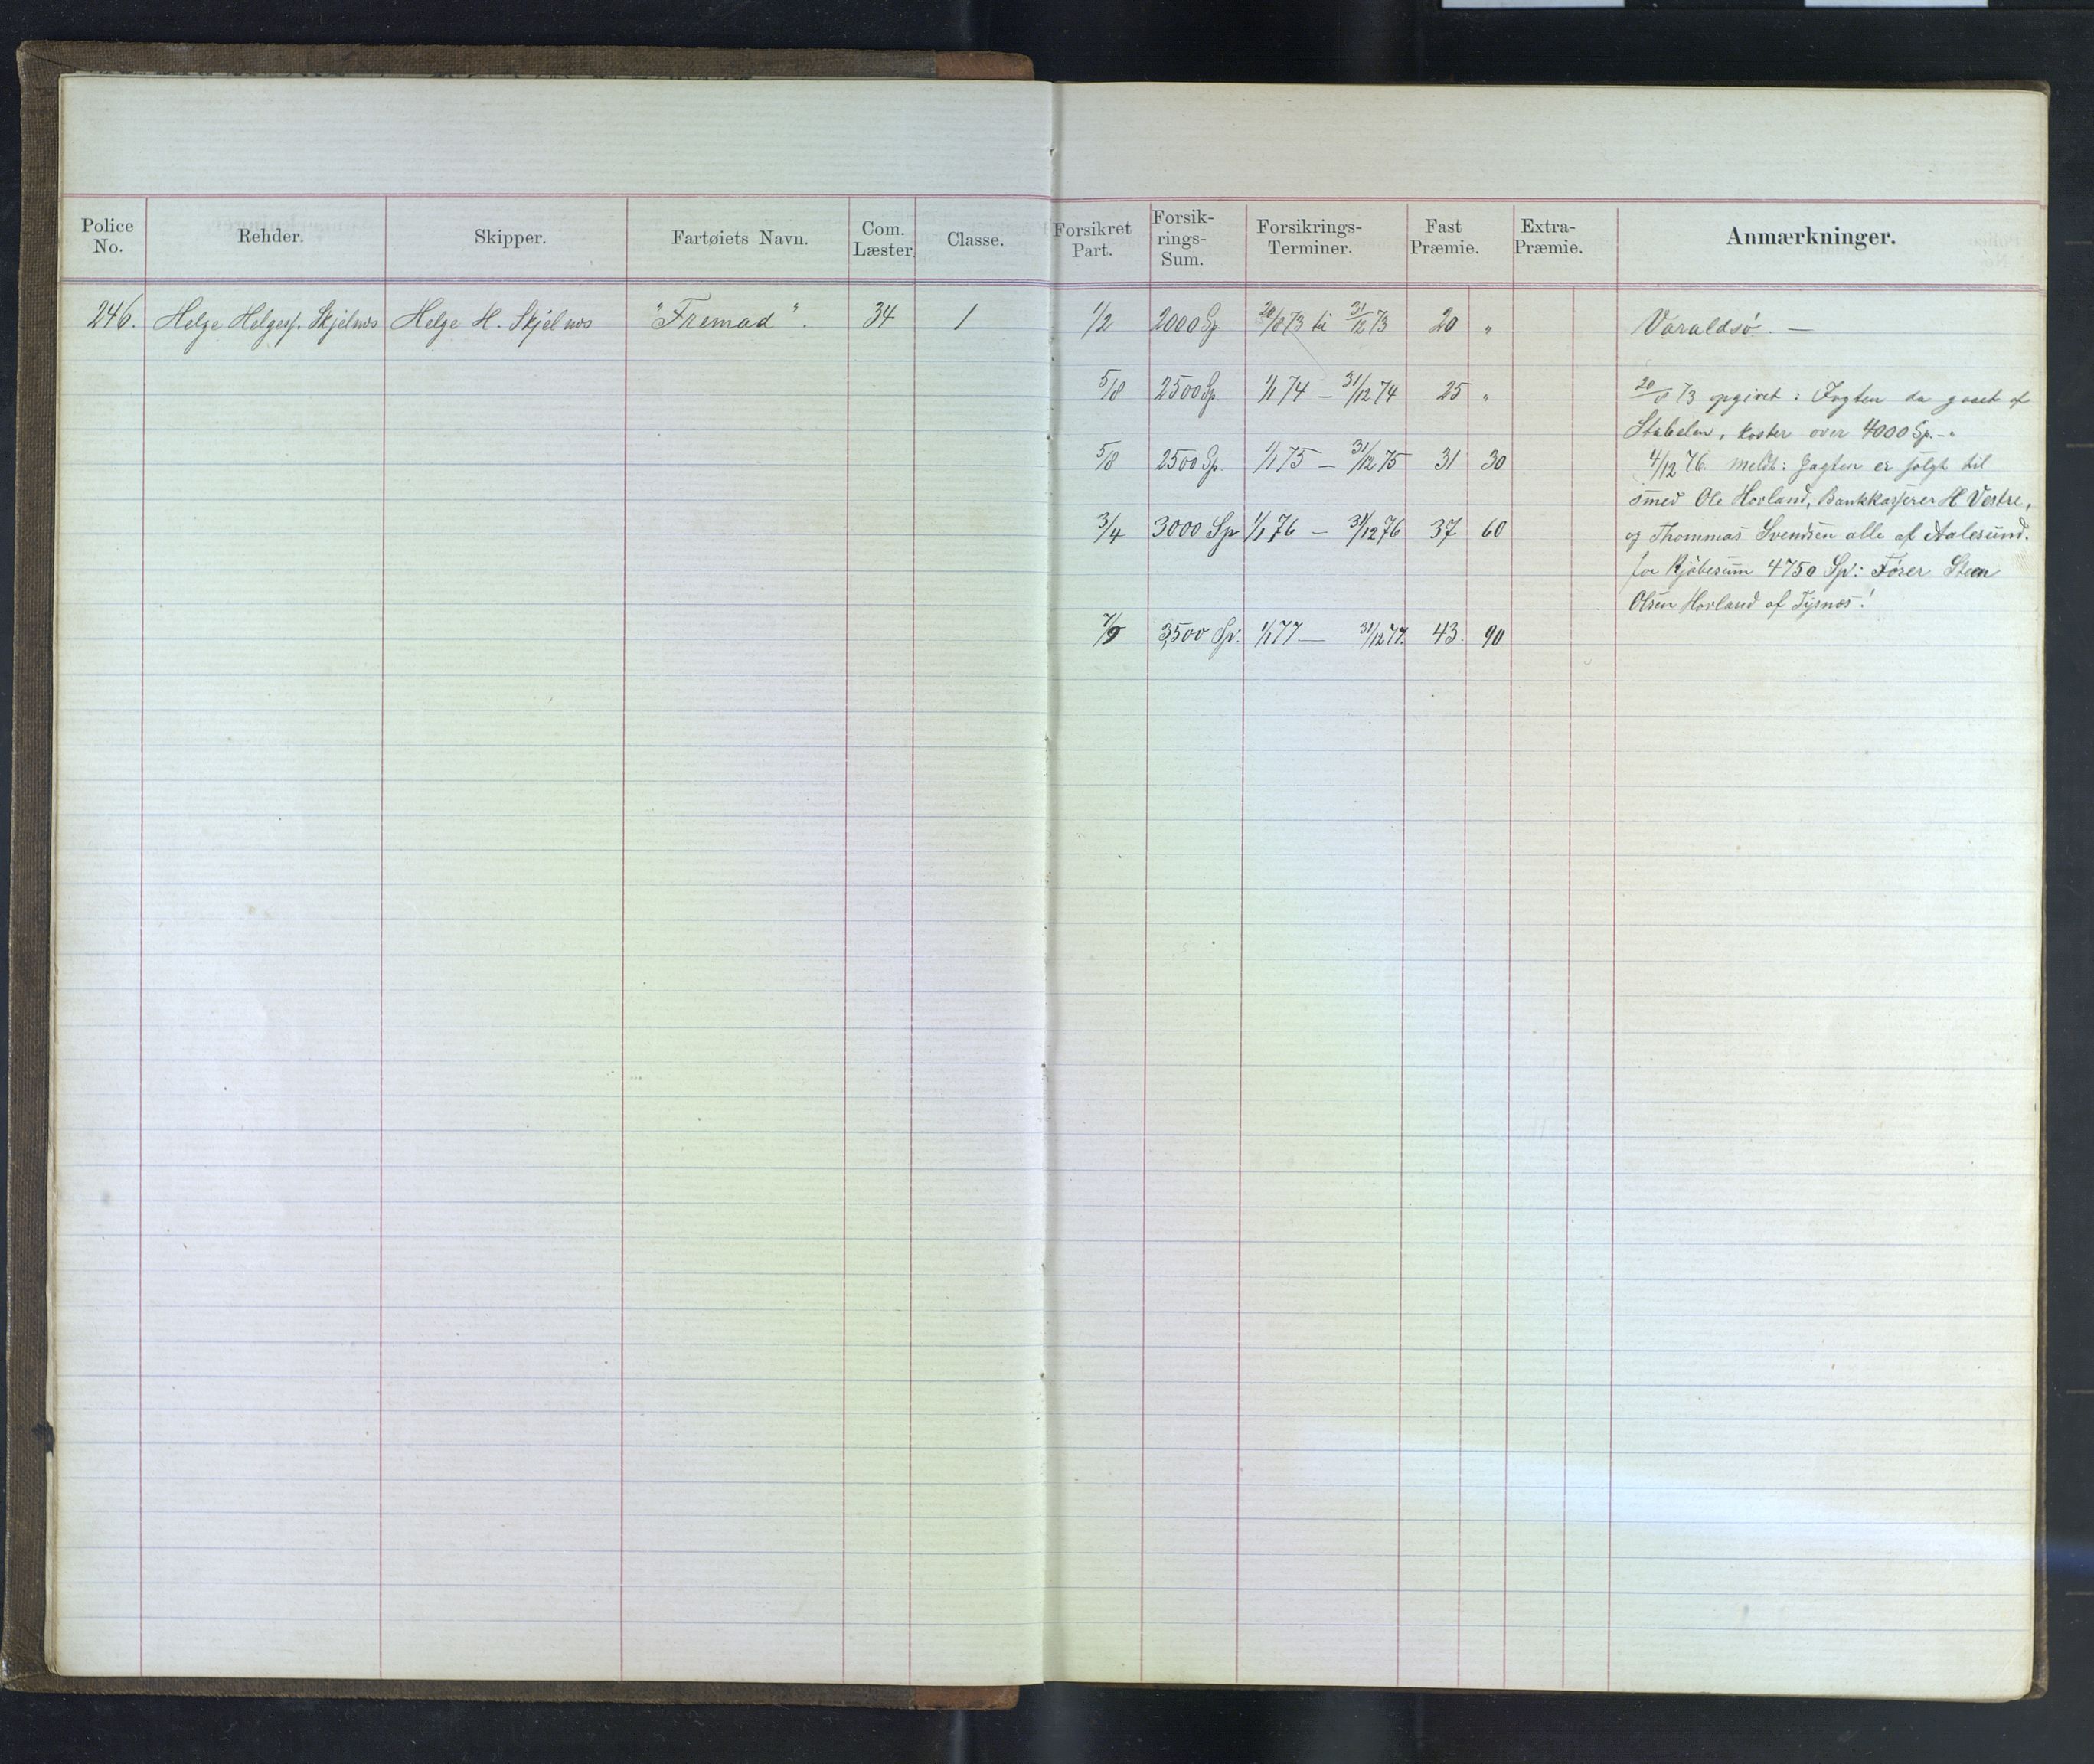 Police No. Rehder. Skipper. Fartøiets Navn. Com. Læster. Classe. Forsikret Part. Forsik-rings-Sum. Forsikrings-Terminer. Fast Præmie. Extra-Præmie. Anmærkninger.
246. Helge Helges. Skjelnæs Helge H. Skjelnæs "Fremad". 34 1 1/2 2000 Sp 20/8 73 til 31/12 73 20 " Varaldsö. —
5/8 2500 Sp. 1/1 74 — 31/12 74 25 " 20/8 73 opgivet: Jagten da gaaet af
Stabelen, koster over 4000 Sp. - "
5/8 2500 Sp. 1/1 75 — 31/12 75 31 30 4/12 76. meldt: Jagten er solgt til
Smed Ole Hovland, Bankkasserer H Vestre,
3/4 3000 Sp 1/1 76 — 31/12 76 37 60 og Thommas Svendsen alle af Aalesund.
for Kjöbesum 4750 Sp: Förer Steen
Olsen Hovland af Tysnæs!
3500 Sp. 1/1 77 — 31/12 77. 43. 90